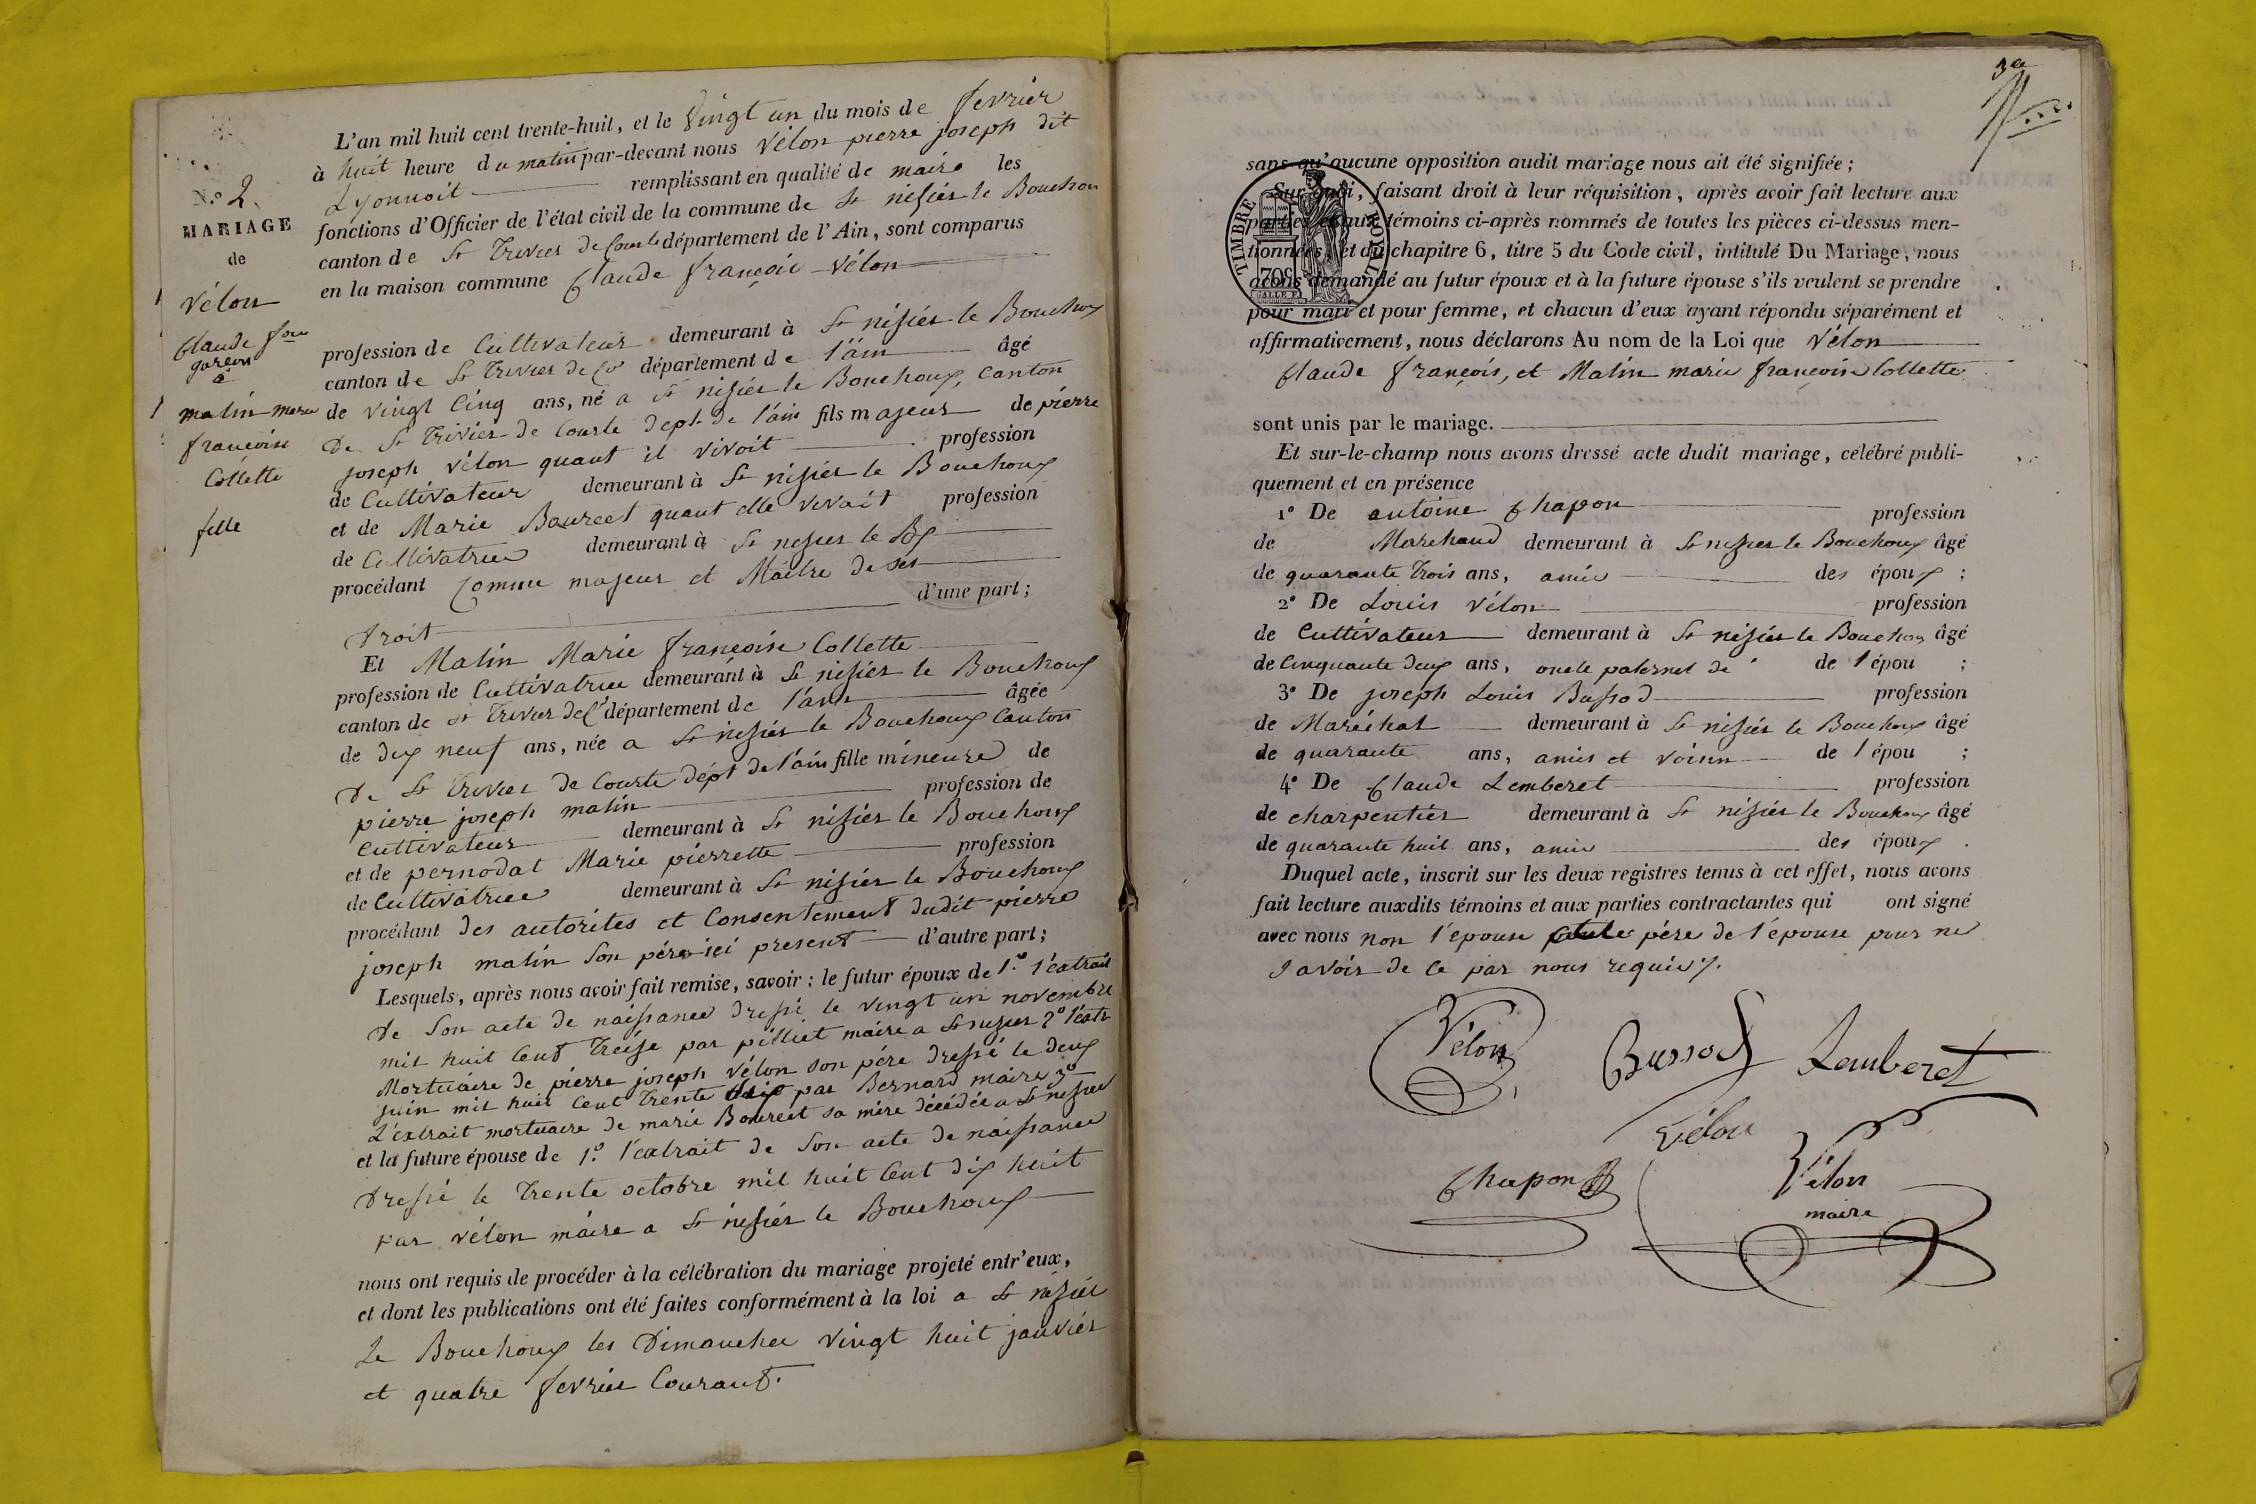 N.º 2.
MARIAGE
de
Vélon
Claude fois
garçon
à
matin marie
francoise
Collette
fille
L'an mil huit cent trente-huit, et le Vingt un du mois de fevrier
à huit heure du matin par-devant nous Vélon pierre joseph dit
Lyonnoit remplissant en qualité de maire les
fonctions d'Officier de l'état civil de la commune de St nisiér le Bouchou
canton de St Trivier de Courte département de l'Ain, sont comparus
en la maison commune Claude françois Vélon
profession de Cultivateur demeurant à St nisiér le Bouchoux
canton de St Trivier de Cte département de l'ain âgé
de vingt Cinq ans, né a St nisiér le Bouchoux, Canton
De St Trivier de Courte dept de l'ain fils majeur de pierre
joseph vélon quant il vivoit profession
de Cultivateur demeurant à St nisiér le Bouchoux
et de Marie Bourcet quant elle vivait profession
de Cultivatrice demeurant à St nisier le Bx
procédant Comme majeur et Maitre de ses
d'une part;
Droit
Et Matin Marie françoise Collette
profession de Cultivatrice demeurant à St nisiér le Bouchoux
canton de St Trivier de Cte département de l'ain âgée
de dix neuf ans, née a St nisiér le Bouchoux Canton
De St Trivier de Courte dépt de l'ain fille mineure de
pierre joseph matin profession de
Cultivateur demeurant à St nisiér le Bouchoux
et de pernodat Marie pierrette profession
de Cultivatrice demeurant à St nisiér le Bouchoux
procédant des autorités et Consentement dudit pierre
joseph matin Son pére ici present d'autre part;
Lesquels, après nous avoir fait remise, savoir: le futur époux de 1.º l'extrait
De Son acte de naissance dressé le vingt un novembre
mil huit Cent Treize par pilliet maire a St nisier 2º l'extr
Mortuaire de pierre joseph Vélon son pére dressé le deux
juin mil huit Cent Trente par Bernard maire 3º
L'extrait mortuaire de marie Bourcet sa mére décédée a St nisier
et la future épouse de 1.º l'extrait de Son acte de naissance
Dressé le Trente octobre mil huit Cent dix huit
par vélon maire a St nisiér le Bouchoux
nous ont requis de procéder à la célébration du mariage projeté entr'eux,
et dont les publications ont été faites conformément à la loi a St nisiér
Le Bouchoux les Dimanches vingt huit janviér
et quatre fevrier Courant.
3e
TIMBRE ROYAL
70c
sans qu'aucune opposition audit mariage nous ait été signifiée;
Sur quoi, faisant droit à leur réquisition, après avoir fait lecture aux
parties et aux témoins ci-après nommés de toutes les pièces ci-dessus men-
tionnées, et du chapitre 6, titre 5 du Code civil, intitulé Du Mariage, nous
avons demandé au futur époux et à la future épouse s'ils veulent se prendre
pour mari et pour femme, et chacun d'eux ayant répondu séparément et
affirmativement, nous déclarons Au nom de la Loi que Vélon
Claude françois, et Matin marie françoise Collette
sont unis par le mariage.
Et sur-le-champ nous avons dressé acte dudit mariage, célébré publi-
quement et en présence
1º De antoine Chapon profession
de Marchand demeurant à St nisier le Bouchoux âgé
de quarante Trois ans, amis des époux;
2º De Louis Vélon profession
de Cultivateur demeurant à St nisiér le Bouchoux âgé
de Cinquante deux ans, oncle paternel de de l'épou;
3º De joseph Louis Bussod profession
de Maréchat demeurant à St nisiér le Bouchoux âgé
de quarante ans, amis et voisin de l'épou;
4º De Claude Lemberet profession
de charpentier demeurant à St nisiér le Bouchoux âgé
de quarante huit ans, amis des époux.
Duquel acte, inscrit sur les deux registres tenus à cet effet, nous avons
fait lecture auxdits témoins et aux parties contractantes qui ont signé
avec nous non l'épouse pére de l'épouse pour ne
savoir de ce par nous requis.
Vélon
Bussod
Lemberet
Vélon
Chapon
Vélon
maire